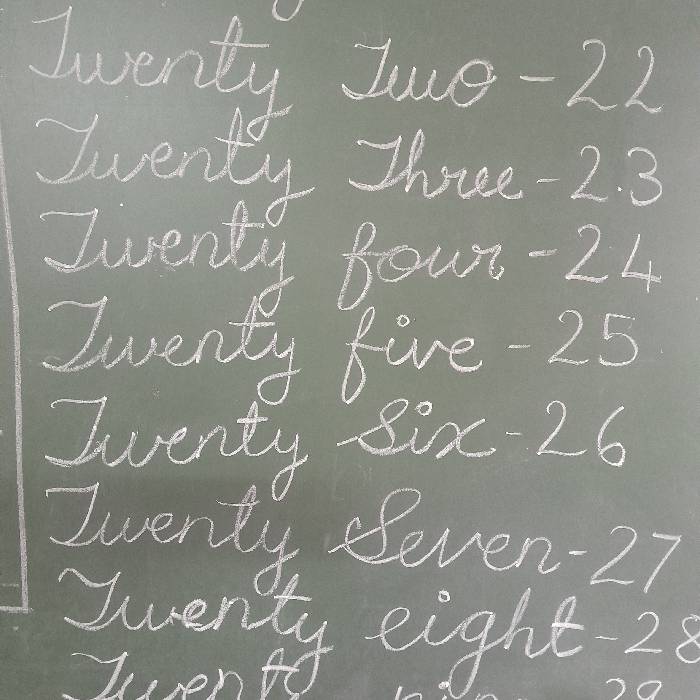 Twenty Two - 22
Twenty Three - 23
Twenty four - 24
Twenty five - 25
Twenty Six - 26
Twenty Seven - 27
Twenty eight - 28
Twenty